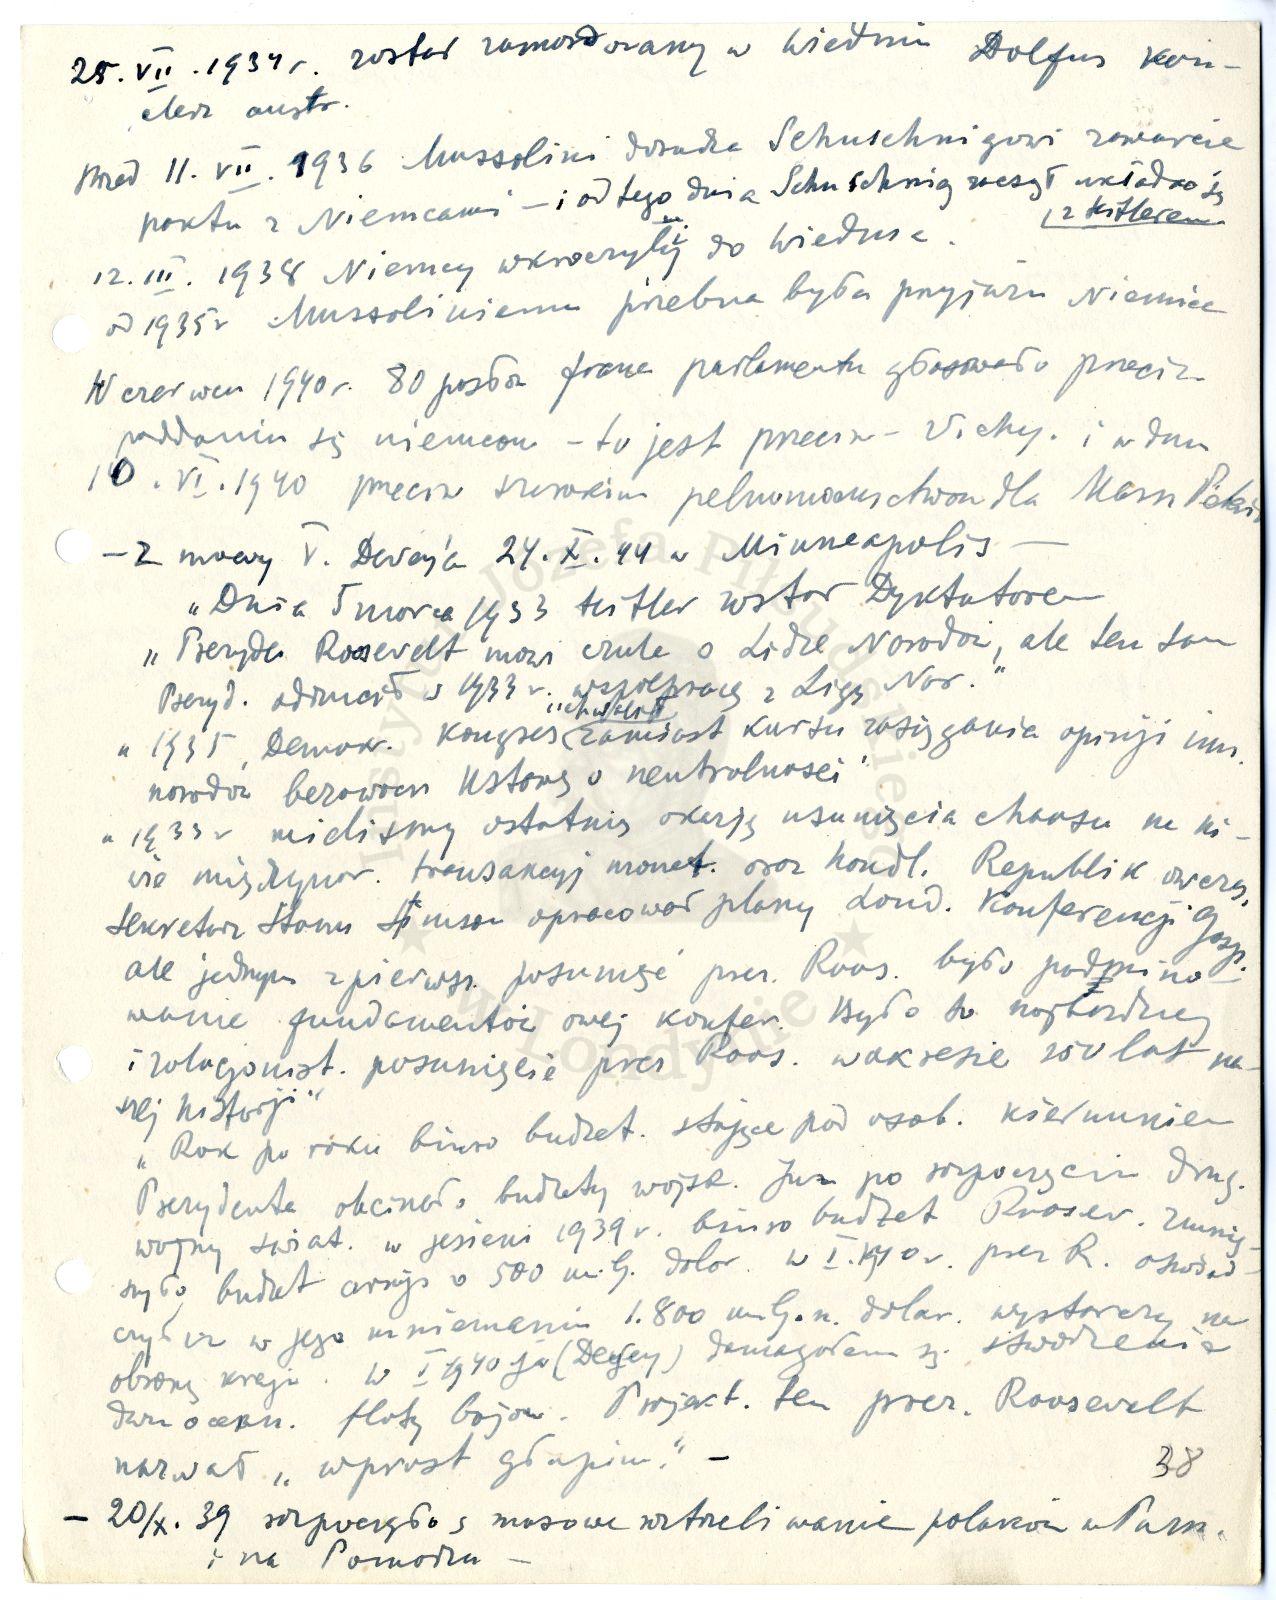 25.VII.1934 r. został zamordowany w Wiedniu Dolfus kan-
clerz austr.
przed 11.VII.1936 Mussolini doradza Schuschnigowi zawarcie
paktu z Niemcami – i od tego dnia Schuschnig zaczął układać się
z Hitlerem
12.III.1938 Niemcy wkroczyli do Wiednia.
od 1935 r Mussoliniemu potrzebna była przyjaźń Niemiec
W czerwcu 1940 r. 80 posłów franc parlamentu głosowało przeciw
poddaniu się niemcom – to jest przeciw – Vichy. i w dniu
10.VI.1940 przeciw szerokim pełnomocnictwom dla Marsz Petain
– Z mowy T. Deweya 24.X.44 w Minneapolis –
"Dnia 5 marca 1933 Hitler został Dyktatorem
"Prezyde Roosevelt mówi czule o Lidze Narodów, ale ten sam
Prezyd. odrzucił w 1933 r. współpracę z Ligą Nar."
"uchwalił
" 1935, Demokr. Kongres zamiast kursu zasięgania opinji inn.
narodów bezowocn Ustawę o neutralności"
" 1933 r mieliśmy ostatnią okazję usunięcia chaosu na ni-
wie międzynar. transakcyj monet. oraz handl. Republik ówczes.
Sekretarz Stanu Stimson opracował plany Lond. Konferencji Gosp.
ale jednym z pierwsz. posunięć prez. Roos. było podmino-
wanie fundamentów owej konfer. Było to najbardziej
izolacjonist. posunięcie prez Roos. w okresie 150 lat na-
szej historji"
"Rok po roku biuro budżet. stojące pod osob. kierunkiem
Prezydenta obcinało budżety wojsk. Już po rozpoczęciu drug.
wojny świat. w jesieni 1939 r. biuro budżet Roosev. zmniej-
szyło budżet armji o 500 milj. dolar. w I.1940 r. prez R. oświad-
czył iż w jego mniemaniu 1.800 milj.n. dolar. wystarczy na
obronę kraju. W I 1940 ja (Dewey) domagałem się stworzenia
dwu ocean. floty bojow. Projekt. ten prez. Roosevelt
nazwał "wprost głupim." –
38
– 20/X.39 rozpoczęło s masowe rozstrzeliwanie polaków w Pozn.
i na Pomorzu –
Instytut Józefa Piłsudskiego
w Londynie